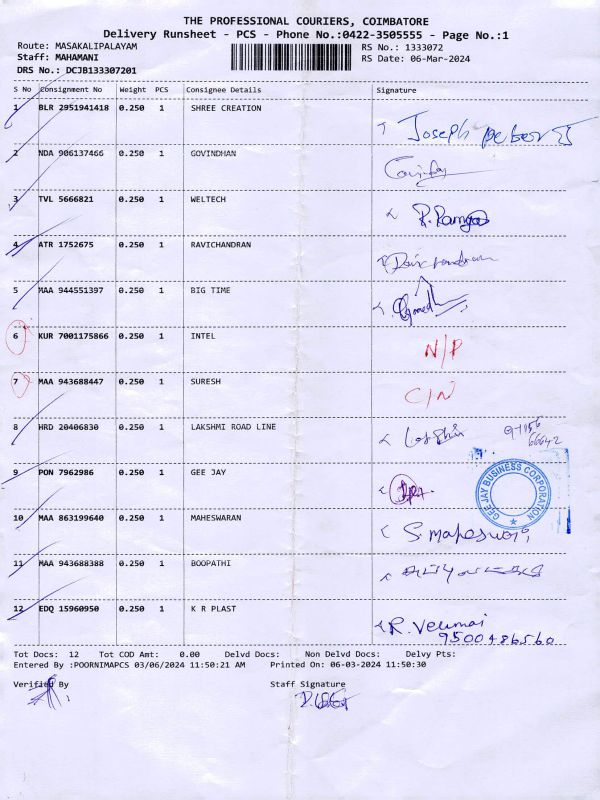 THE PROFESSIONAL COURIERS, COIMBATORE
Delivery Runsheet - PCS - Phone No.:0422-3505555 - Page No.:1
Route: MASAKALIPALAYAM RS No.: 1333072
Staff: MAHAMANI RS Date: 06-Mar-2024
DRS No.: DCJB133307201
S No Consignment No Weight PCS Consignee Details Signature
1 BLR 2951941418 0.250 1 SHREE CREATION
Joseph
2 NDA 906137466 0.250 1 GOVINDHAN
3 TVL 5666821 0.250 1 WELTECH
4 ATR 1752675 0.250 1 RAVICHANDRAN
5 MAA 944551397 0.250 1 BIG TIME
6 KUR 7001175866 0.250 1 INTEL
N/P
7 MAA 943688447 0.250 1 SURESH
C/N
8 HRD 20406830 0.250 1 LAKSHMI ROAD LINE
9 PON 7962986 0.250 1 GEE JAY
GEE JAY BUSINESS CORPORATION
10 MAA 863199640 0.250 1 MAHESWARAN
11 MAA 943688388 0.250 1 BOOPATHI
12 EDQ 15960950 0.250 1 K R PLAST
R. Velumai
9500486560
Tot Docs: 12 Tot COD Amt: 0.00 Delvd Docs: Non Delvd Docs: Delvy Pts:
Entered By :POORNIMAPCS 03/06/2024 11:50:21 AM Printed On: 06-03-2024 11:50:30
Verified By Staff Signature